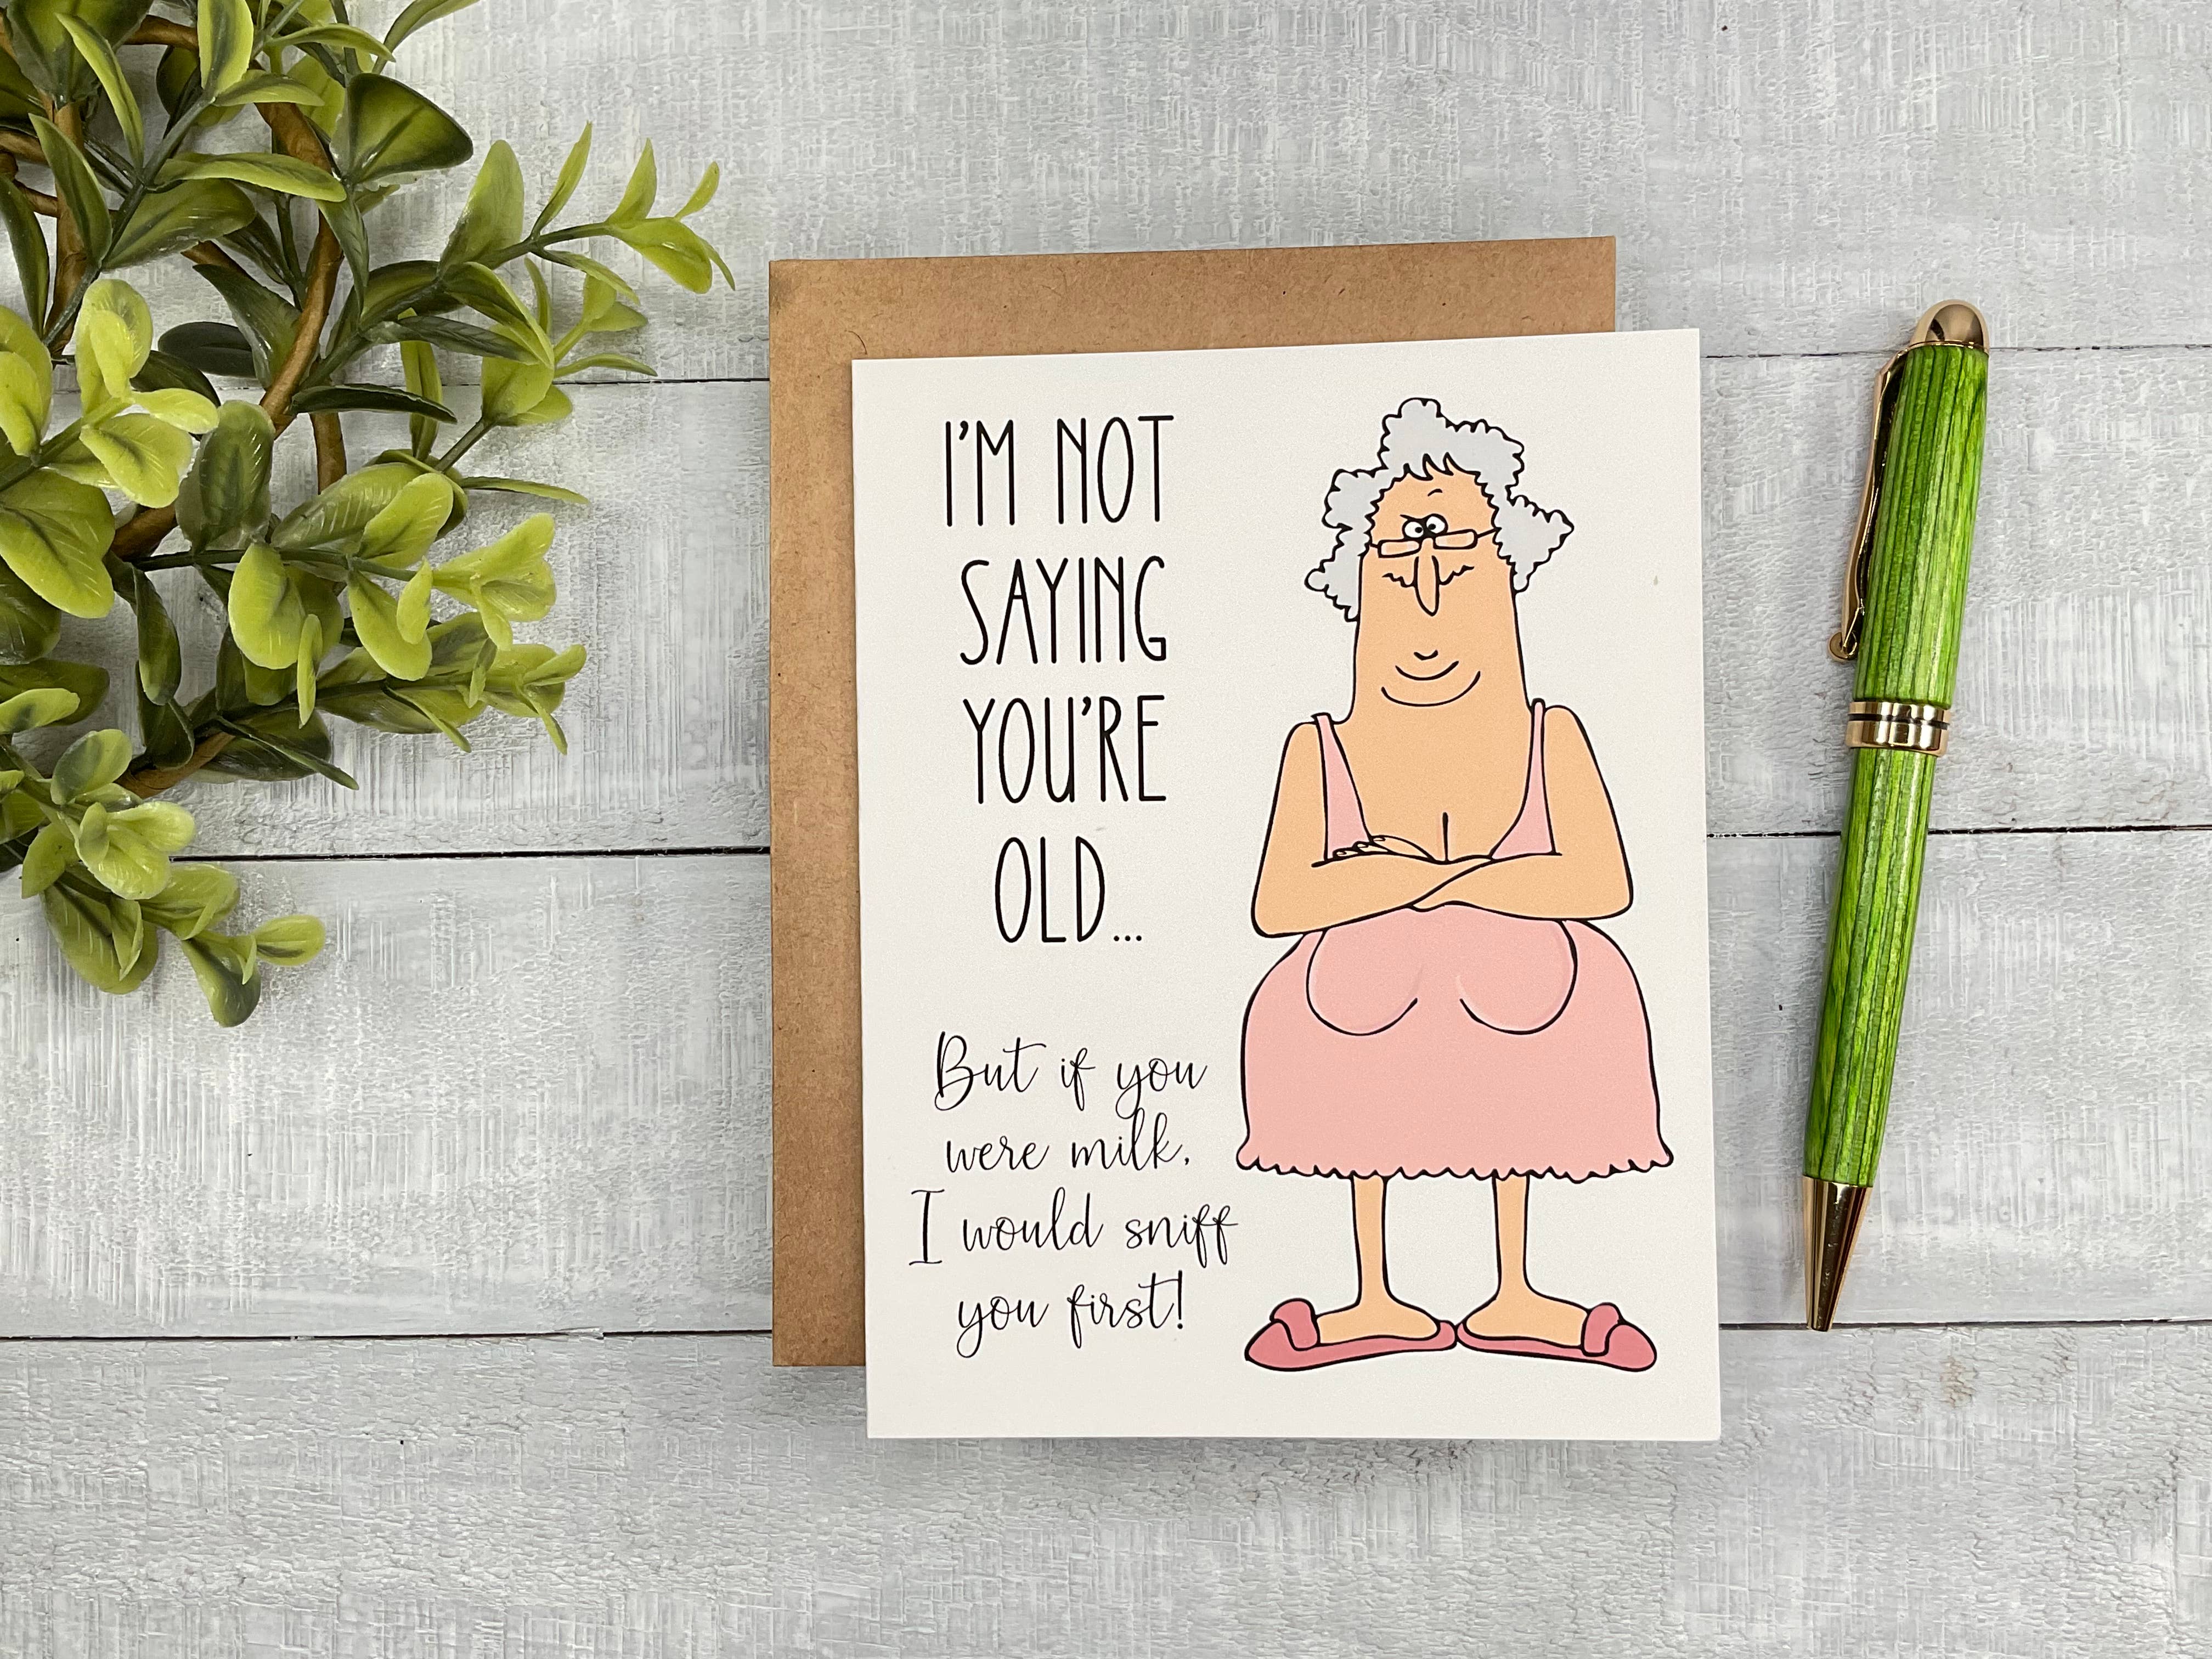 I'M NOT
SAYING
YOU'RE
OLD...
But if you
were milk,
I would sniff
you first!